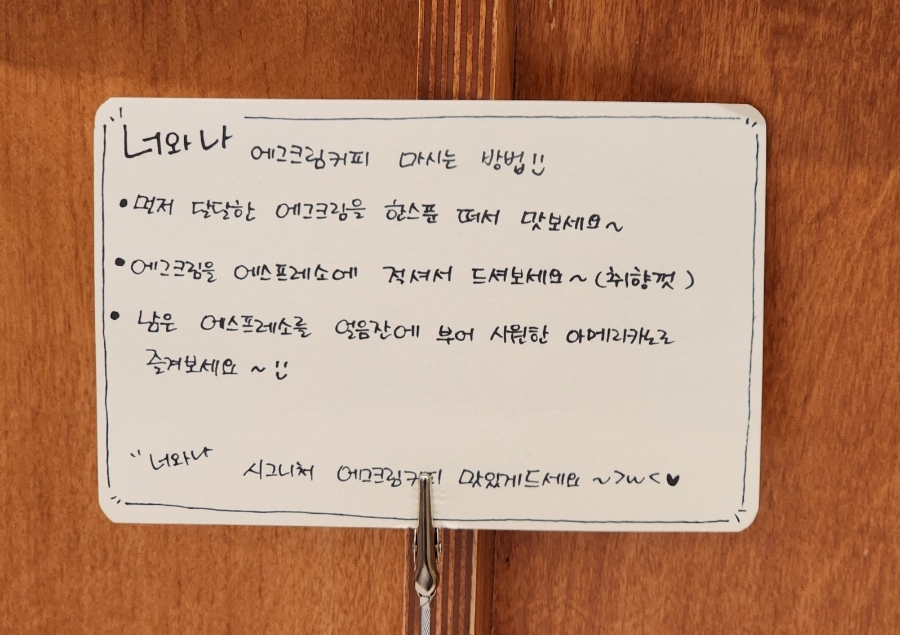 너와나 에그크림커피 마시는 방법!!
• 먼저 달달한 에그크림을 한스푼 떠서 맛보세요~
• 에그크림을 에스프레소에 적셔서 드셔보세요~ (취향껏)
• 남은 에스프레소를 얼음잔에 부어 시원한 아메리카노로
즐겨보세요~!!
"너와나 시그니처 에그크림커피 맛있게드세요~>w<♥